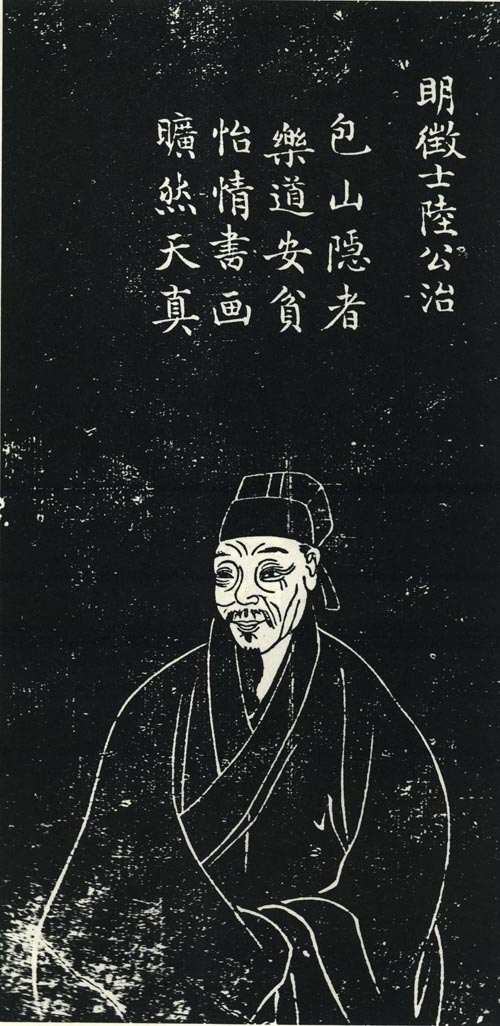 明徵士陸公治
包山隠者
樂道安貧
怡情書画
曠然天真